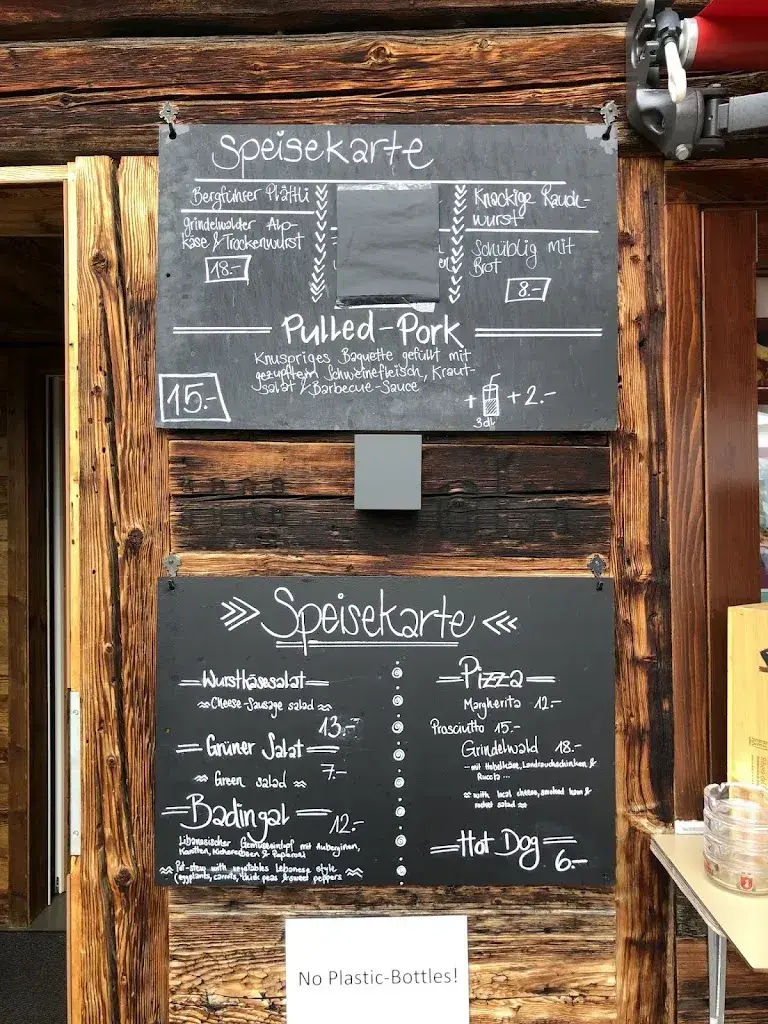 Speisekarte
Bergführer Plättli
Grindelwalder Alp-
käse & Trockenwurst
18.-
Knackige Rauch-
wurst
Schüblig mit
Brot
8.-
Pulled-Pork
Knuspriges Baguette gefüllt mit
gezupftem Schweinefleisch, Kraut-
salat & Barbecue-Sauce
15.-
+ + 2.-
3dl
Speisekarte
Wurstkäsesalat
Cheese-Sausage salad
13.-
Grüner Salat
7.-
Green salad
Badingal
12.-
Libanesischer Gemüseeintopf mit Auberginen,
Karotten, Kichererbsen & Peperoni
Pot-stew with vegetables Lebanese style
(eggplants, carrots, chick peas & sweet peppers
Pizza
Margherita 12.-
Prosciutto 15.-
Grindelwald 18.-
- mit Hobelkäse, Landrauchschinken &
Rucola ...
with local cheese, smoked ham &
rocket salad
Hot Dog
6.-
No Plastic-Bottles!